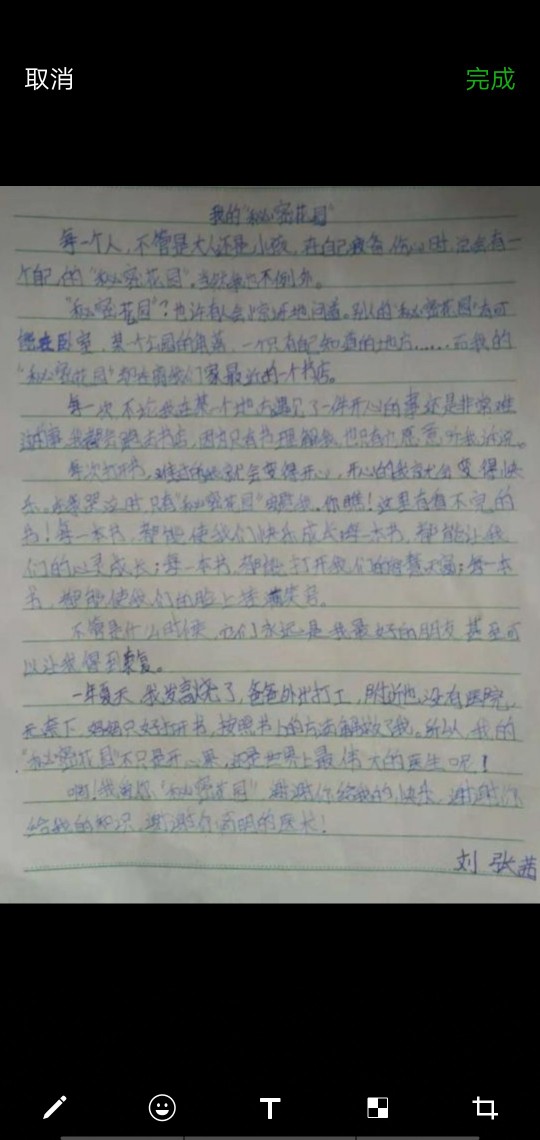 取消
完成
我的“秘密花园”
每一个人，不管是大人还是小孩，在自己寂寞、伤心时，总会有一
个自己的“秘密花园”。当然我也不例外。
“秘密花园”？也许有人会惊讶地问着。别人的“秘密花园”有可
能在卧室，某一个公园的角落，一个只有自己知道的地方……而我的
“秘密花园”却是离我们家最近的一个书店。
每一次不论我在某一个地方遇见了一件开心的事还是非常难
过的事，我都会跑去书店，因为只有书理解我，也只有它愿意听我诉说。
每次打开书，难过的我就会变得开心，开心的我
乐。只有“秘密花园”安慰我。你瞧！这里有看不完的
书！每一本书，都能使我们快乐成长；每一本书，都能让我
们的心灵成长；每一本书，都能打开我们的智慧天窗；每一本
书，都能使我们的脸上挂满笑容。
不管是什么时候，它们永远是我最好的朋友，甚至可
以让我得到康复。
一年夏天，我发高烧了，爸爸外出打工，附近也没有医院，
无奈下，妈妈只好打开书，按照书上的方法解救了我。所以，我的
“秘密花园”不只是开心果，还是世界上最伟大的医生呢！
啊！我的“秘密花园”，谢谢你给我的快乐，谢谢你
给我的知识，谢谢你高明的医术！
刘张茜
T